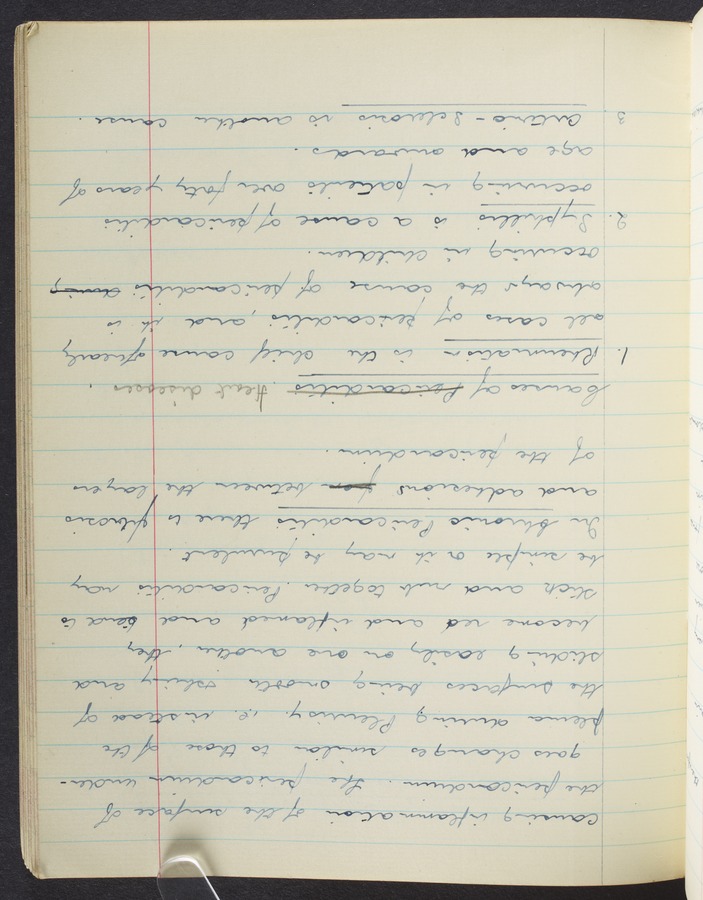 causing inflammation of the surface of
the pericardium. The pericardium under-
goes changes similar to those of the
pleura during Pleurisy. i.e. instead of
the surfaces being smooth shiny and
sliding easily on one another, they
become red and inflamed and tend to
stick and rub together. Pericarditis may
be simple or it may be purulent.
In Chronic Pericarditis there is fibrosis
and adhesions between the layers
of the pericardium.
Causes of Pericarditis Heart diseases.
1. Rheumatism is the chief cause of nearly
all cases of pericarditis, and it is
always the cause of pericarditis
occurring in children.
2. Syphillis is a cause of pericarditis
occurring in patients over forty years of
age and onwards.
3. Arterio-Sclerosis is another cause.